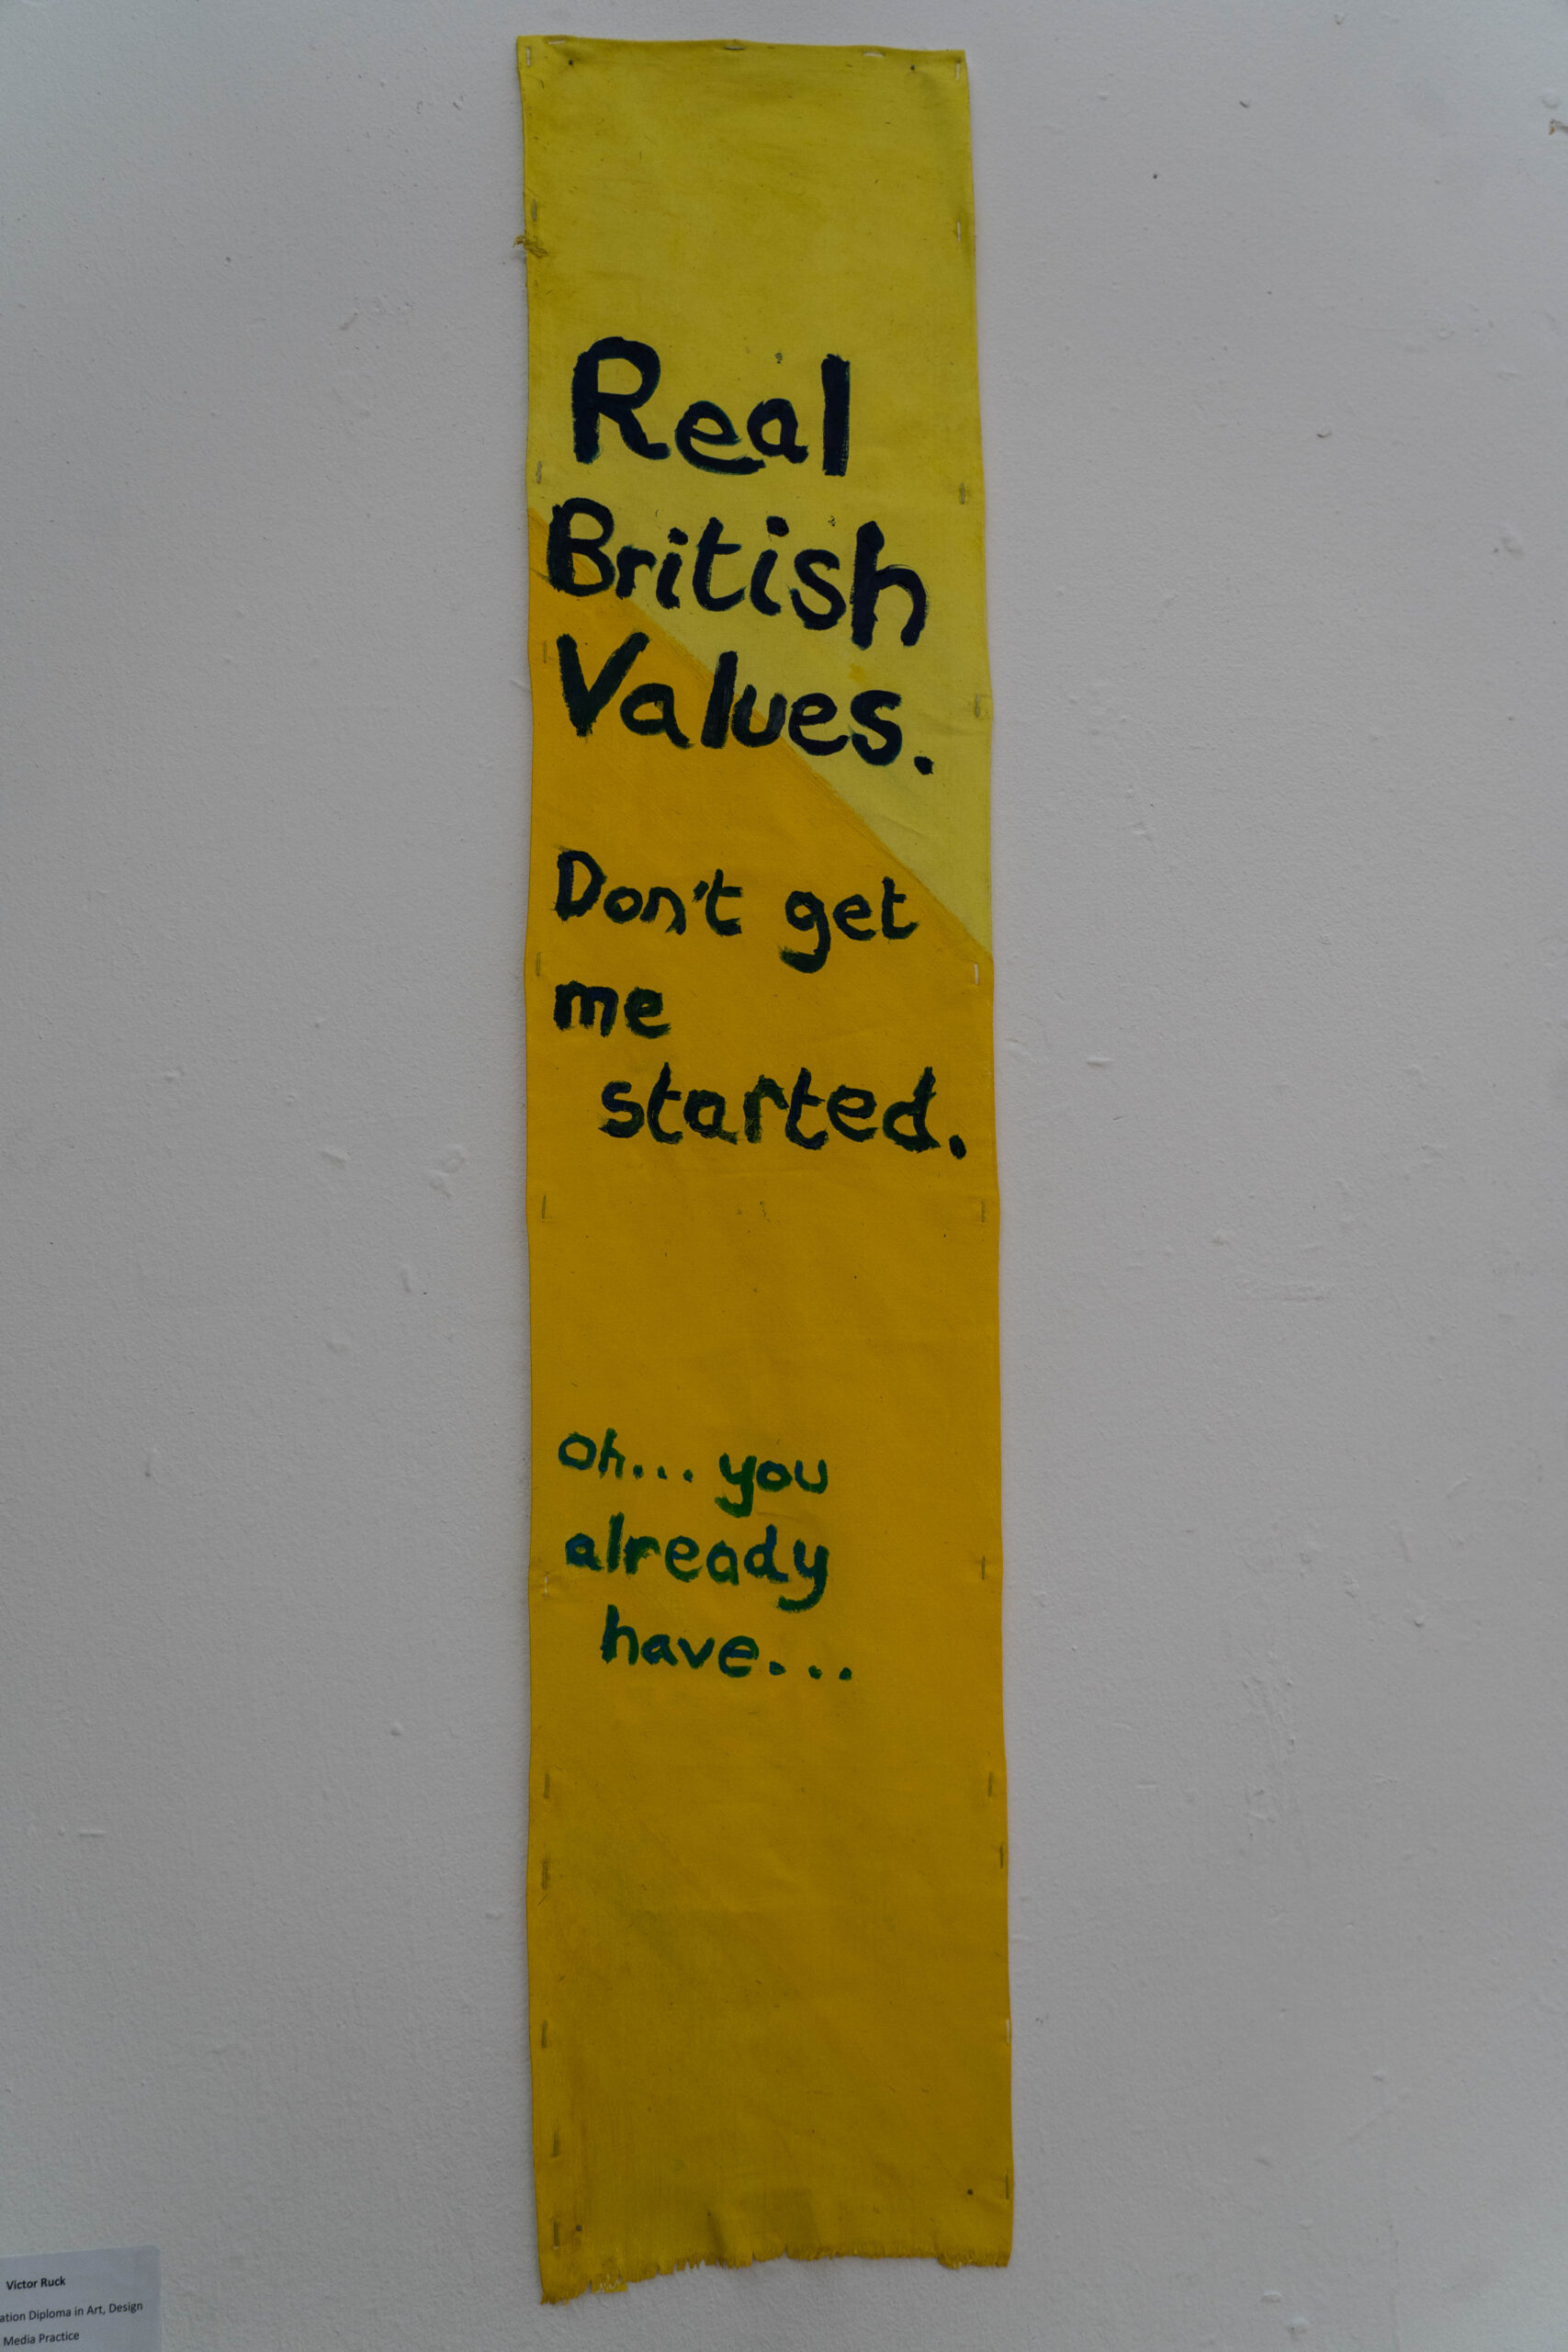 Real
British
Values.
Don't get
me
started.
oh... you
already
have...
Victor Ruck
ation Diploma in Art, Design
Media Practice